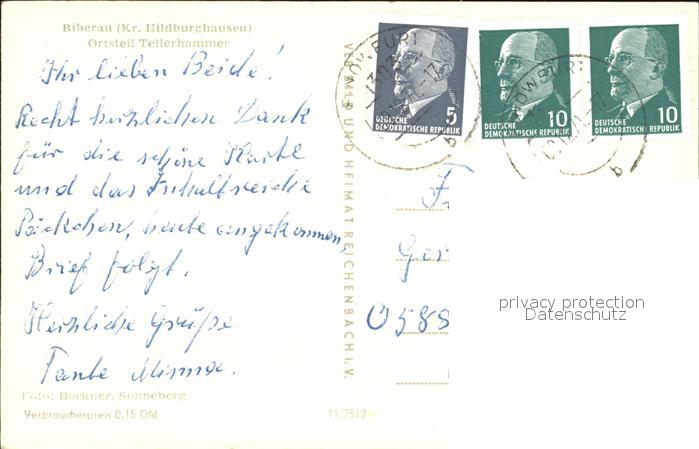 Biberau (Kr. Hildburghausen)
Ortsteil Tellerhammer
Ihr lieben Beide!
Recht herzlichen Dank
für die schöne Karte
und das Inhaltreiche
Päckchen, heute angekommen,
Brief folgt.
Herzliche Grüße
Tante Minna.
Foto: Bockner, Sonneberg
Verbraucherpreis 0.15 DM
UND HEIMAT REICHENBACH I. V.
11,7512
5
DEUTSCHE
DEMOKRATISCHE REPUBLIK
10
DEUTSCHE
DEMOKRATISCHE REPUBLIK
10
DEUTSCHE
DEMOKRATISCHE REPUBLIK
b
b
Ger
0588
privacy protection
Datenschutz